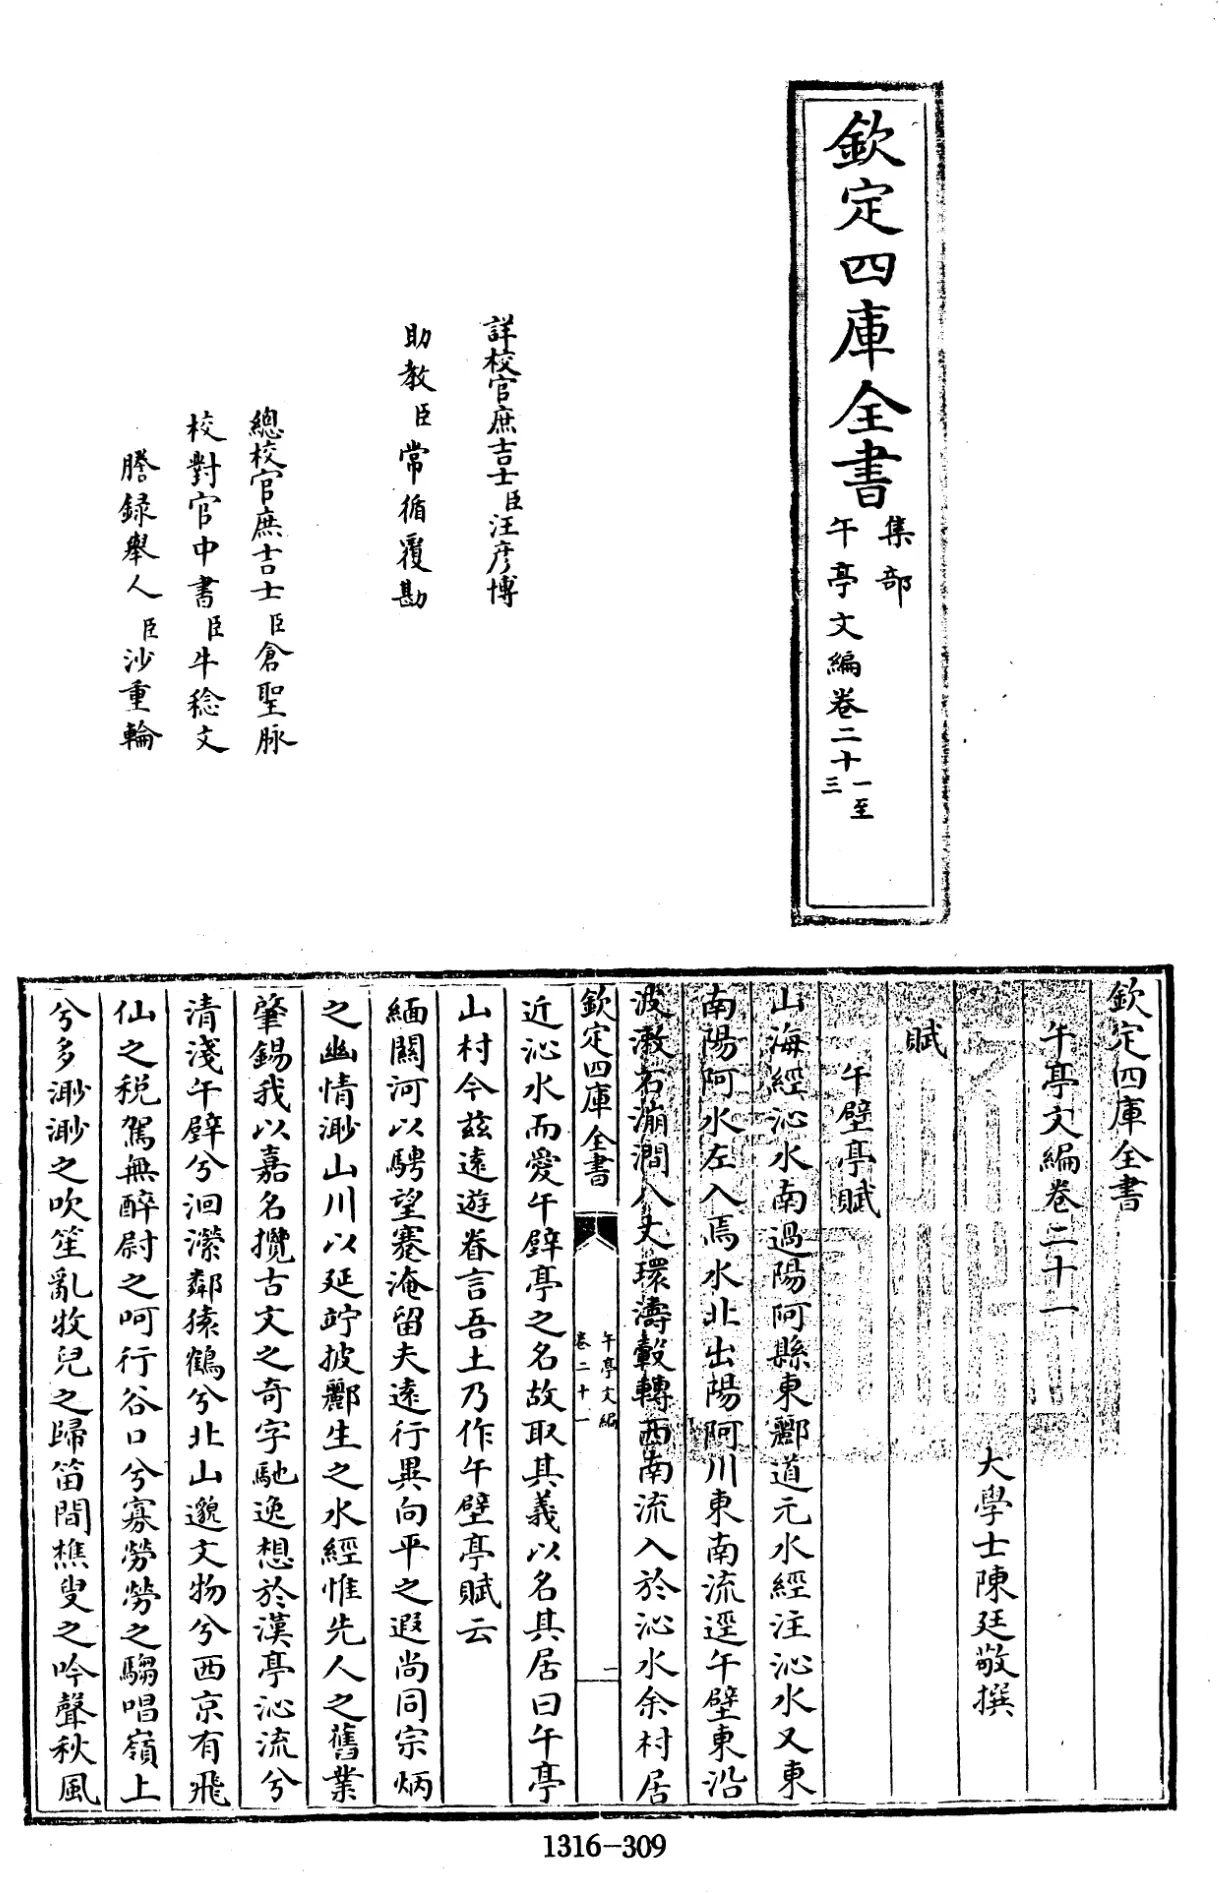 欽定四庫全書
集部
午亭文編卷二十
一至
三
詳校官庶吉士臣汪彥博
助教臣常循覆勘
總校官庶吉士臣倉聖脉
校對官中書臣牛稔文
謄録舉人臣沙重輪
欽定四庫全書
午亭文編卷二十一
大學士陳廷敬撰
賦
午壁亭賦
山海經沁水南過陽阿縣東酈道元水經注沁水又東
南陽阿水左入焉水北出陽阿川東南流逕午壁東沿
波漱石漰澗八丈環濤轂轉西南流入於沁水余村居
欽定四庫全書
午亭文編
卷二十一
一
近沁水而愛午壁亭之名故取其義以名其居曰午亭
山村今兹遠遊眷言吾土乃作午壁亭賦云
緬關河以騁望蹇淹留夫遠行異向平之遐尚同宗炳
之幽情渺山川以延竚披酈生之水經惟先人之舊業
肇錫我以嘉名攬古文之奇字馳逸想於漢亭沁流兮
清淺午壁兮洄潆鄰猿鶴兮北山邈文物兮西京有飛
仙之税駕無醉尉之呵行谷口兮寡勞勞之騶唱嶺上
兮多渺渺之吹笙亂牧兒之歸笛間樵叟之吟聲秋風
1316-309